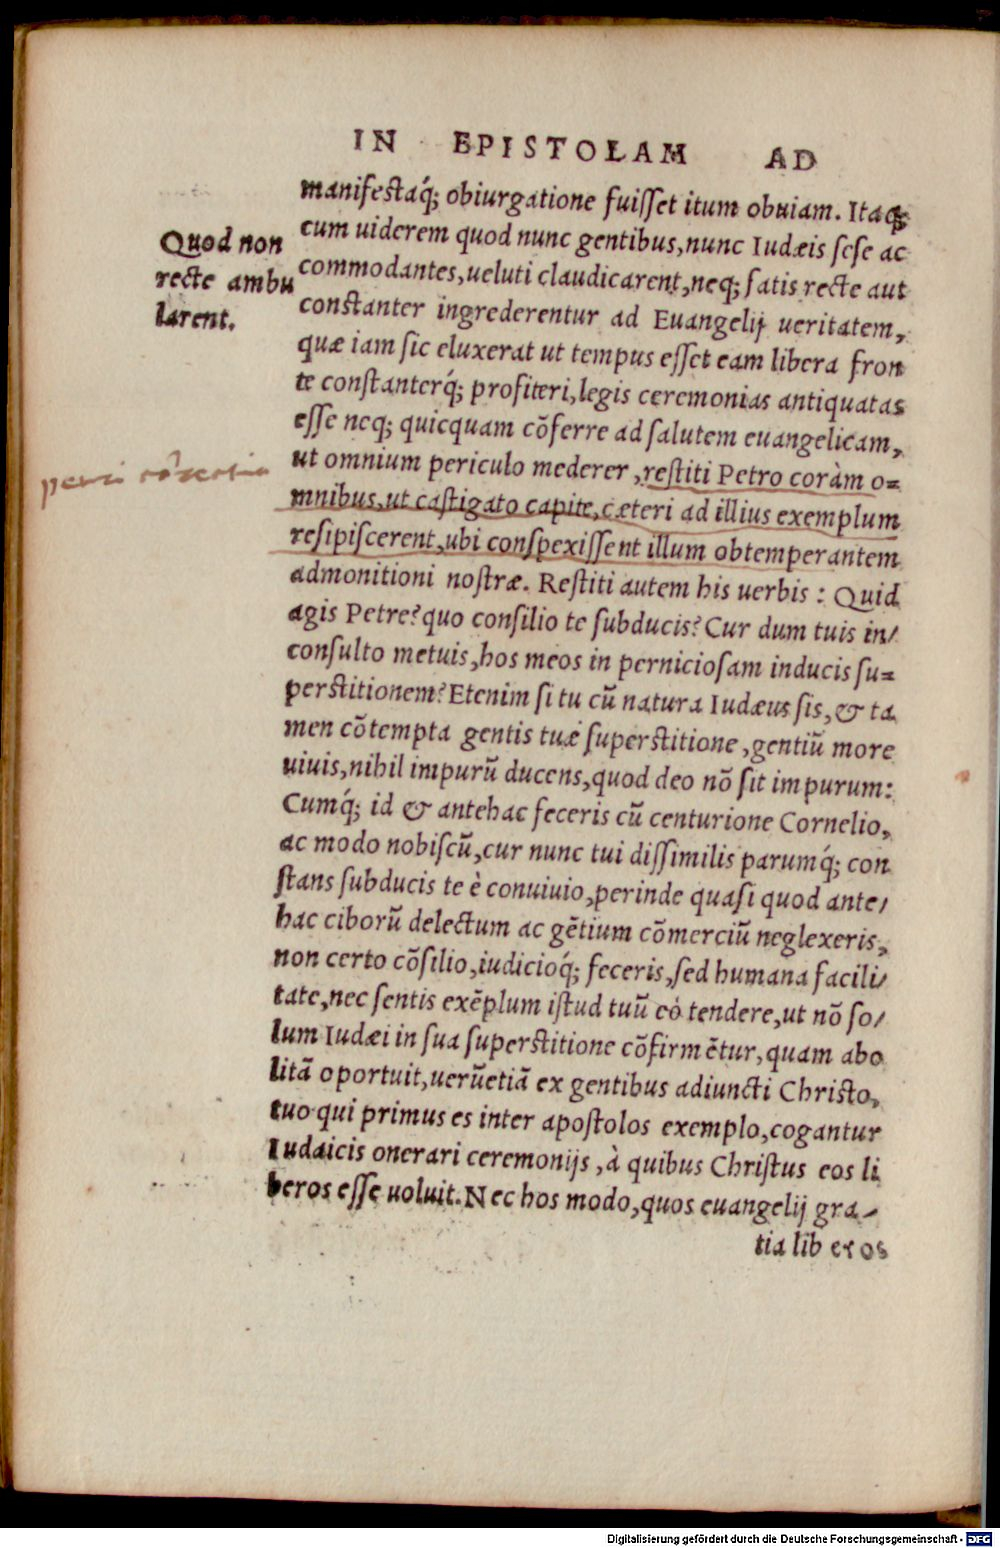 IN EPISTOLAM AD
manifestaq́; obiurgatione fuisset itum obuiam. Itaq;
Quod non
recte ambu
larent.
cum uiderem quod nunc gentibus, nunc Iudæis sese ac
commodantes, ueluti claudicarent, neq; satis recte aut
constanter ingrederentur ad Euangelij ueritatem,
quæ iam sic eluxerat ut tempus esset eam libera fron
te constanterq́; profiteri, legis ceremonias antiquatas
esse neq; quicquam cōferre ad salutem euangelicam,
ut omnium periculo mederer, restiti Petro coràm o=
mnibus, ut castigato capite, cæteri ad illius exemplum
resipiscerent, ubi conspexissent illum obtemperantem
admonitioni nostræ. Restiti autem his uerbis: Quid
agis Petre? quo consilio te subducis? Cur dum tuis in/
consulto metuis, hos meos in perniciosam inducis su=
perstitionem? Etenim si tu cū natura Iudæus sis, & ta
men cōtempta gentis tuæ superstitione, gentiū more
uiuis, nihil impurū ducens, quod deo nō sit impurum:
Cumq́; id & antehac feceris cū centurione Cornelio,
ac modo nobiscū, cur nunc tui dissimilis parumq́; con
stans subducis te è conuiuio, perinde quasi quod ante/
hac ciborū delectum ac gētium cōmerciū neglexeris,
non certo cōsilio, iudicioq́; feceris, sed humana facili/
tate, nec sentis exēplum istud tuū eò tendere, ut nō so/
lum Iudæi in sua superstitione cōfirmētur, quam abo
litā oportuit, uerūetiā ex gentibus adiuncti Christo,
tuo qui primus es inter apostolos exemplo, cogantur
Iudaicis onerari ceremonijs, à quibus Christus eos li
beros esse uoluit. Nec hos modo, quos euangelij gra-
tia liberos
Digitalisierung gefördert durch die Deutsche Forschungsgemeinschaft - DFG